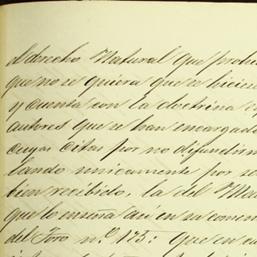 el derecho Natural que prohi
que no se quiera que se hicie
y cuenta con la doctrina
autores que se han encargado
cuyas citas por no difundirm
lando unicamente por se
bien recibido, la del
que lo enseña así en su comen
del Foro n.º 175: Que en